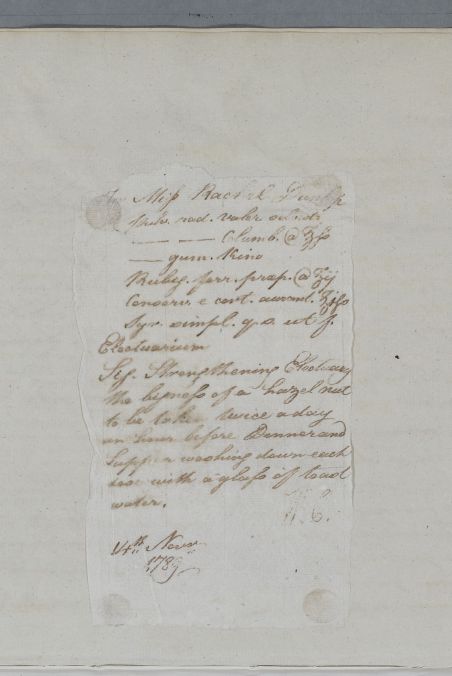 For Miss Rachel Dunlop
Pulv. rad. valer. sylvestr
— — Columb. @ ʒſs
— gum. Kino
Rubig. ferr. præp. @ ʒij
Conserv. e cort. aurant. ʒjſs
Syr. simpl. q. s. ut f.
Electuarium
Sig. Strengthening Electuary
the bigness of a hazel nut
to be taken twice a day
an hour before Dinner and
Supper washing down each
dose with a glass of toad
water.
W. C.
14th. Novr
1789